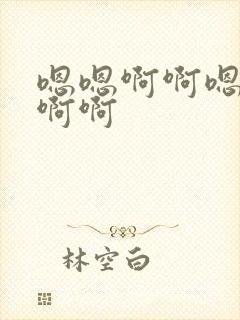 嗯嗯啊啊嗯
啊啊
林空白